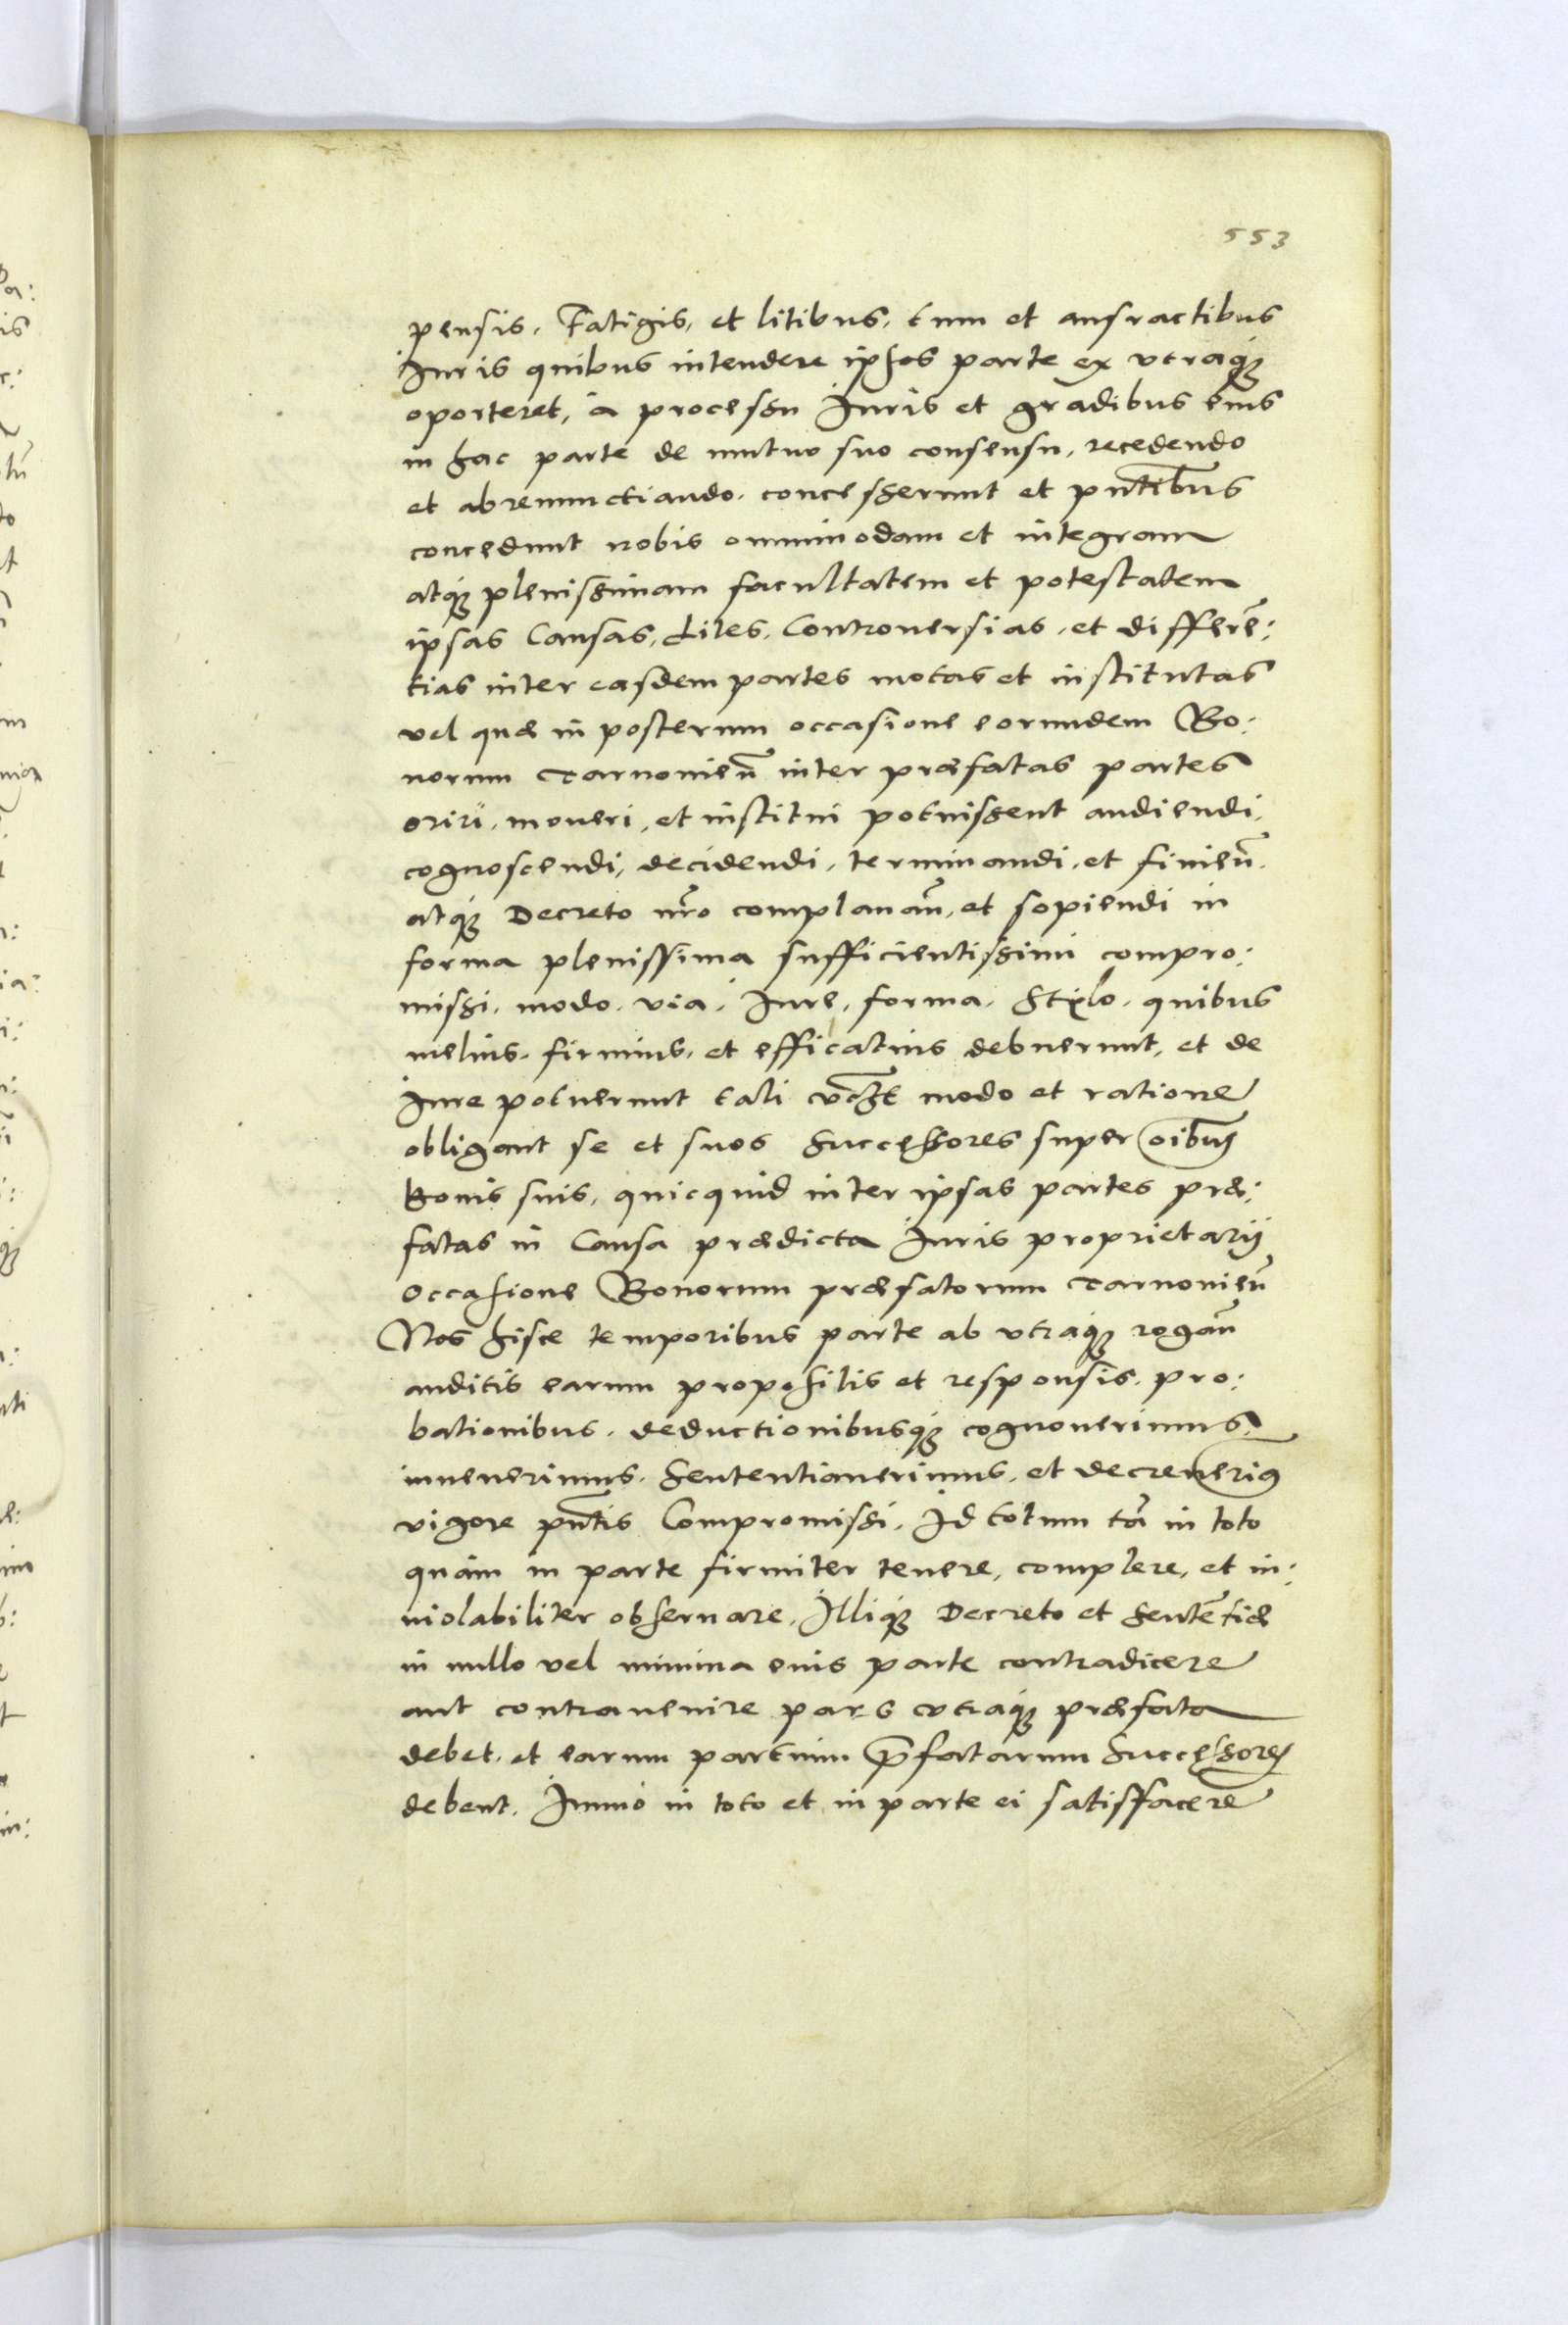 553
pensis, Fatigis, et litibus, tum et anfractibus
Iuris quibus intendere ipsos parte ex vtraq3
oporteret, à processu Iuris et gradibus eius
in hac parte de mutuo suo consensu, recedendo
et abrenunctiando. concesserunt et pn̄tibus
concedunt nobis omnimodam et integram
atq3 plenissimam facultatem et potestatem
ipsas Causas, Lites, Controuersias, et differē:
tias inter easdem partes motas et institutas
vel quæ in posterum occasione eorundem Bo:
norum Tarnouien̄ inter præfatas partes
oriri, moueri, et institui potuissent audiendi,
cognoscendi, decidendi, terminandi, et finien̄.
atq3 Decreto nr̄o complanan̄, et sopiendi in
forma plenissima sufficientissimi compro:
missi, modo, via, Iure, forma, Stylo, quibus
melius, firmius, et efficatius debuerunt, et de
Iure potuerunt tali vc3t modo et ratione
obligant se et suos Successores super oībus
Bonis suis, quicquid inter ipsas partes præ:
fatas in Causa prædicta Iuris proprietarij
Occasione Bonorum præfatorum Tarnouien̄
Nos hisce temporibus parte ab vtraq3 rogan̄
auditis earum propositis et responsis, pro:
bationibus, deductionibusq3 cognouerimus,
inuenerimus, Sententiauerimus, et decreuerim9
vigore pn̄tis Compromissi, Id totum tā in toto
quàm in parte firmiter tenere, complere, et in:
uiolabiliter obseruare, Illiq3 Decreto et Sentētiæ
in nullo vel minima eius parte contradicere
aut contrauenire pars vtraq3 præfata
debet, et earum partium p̄fatarum Successores
debent. Immò in toto et in parte ei satisfacere